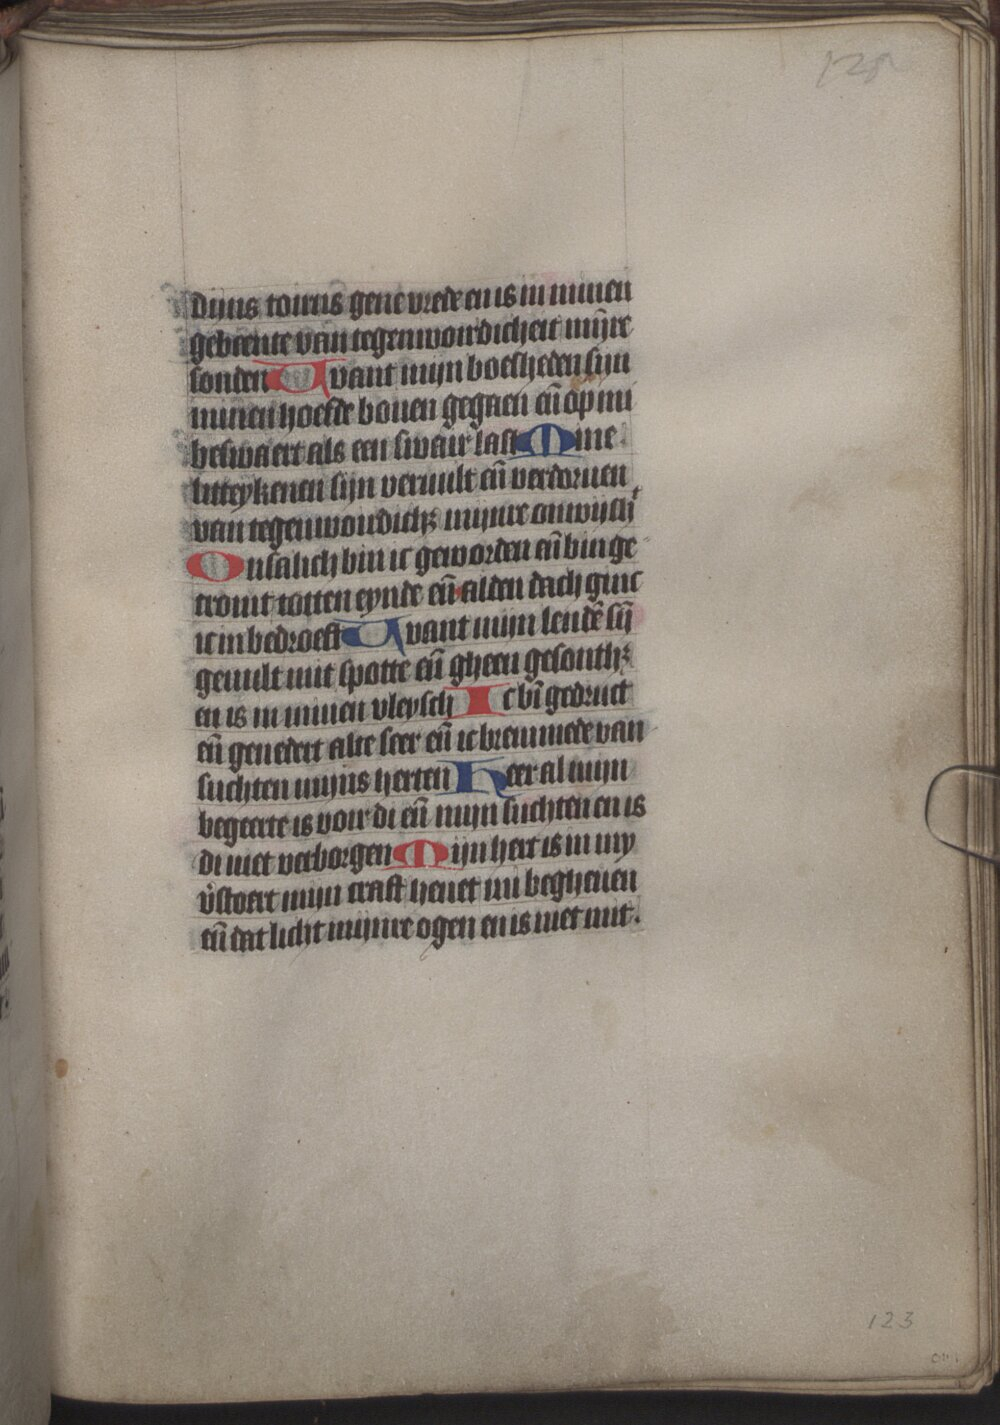 128
dijns toirns gene vrede en is in minen
gebeente van tegenwoirdicheit mijnre
sonden Want mijn boesheden sijn
minen hoefde bouen gegaen eñ op mi
beswaert als een swair last Mine
litteykenen sijn veruult eñ verdoruen
van tegenwoirdichz mijnre onwijsh
Onsalich bin ic geworden eñ bin ge
cromt totten eynde eñ alden dach ginc
ic in bedroeft Want mijn lendē sij
geuult mit spotte eñ gheen gesonthz
en is in minen vleysch Ic bī gedruct
eñ genedert alte seer eñ ic bremmede van
suchten mijns herten Heer al mijn
begeerte is voir di eñ mijn suchten en is
di niet verborgen Mijn hert is in my
v̄stoert mijn craft heuet mi begheuen
eñ dat licht mijnre ogen en is niet mit.
123